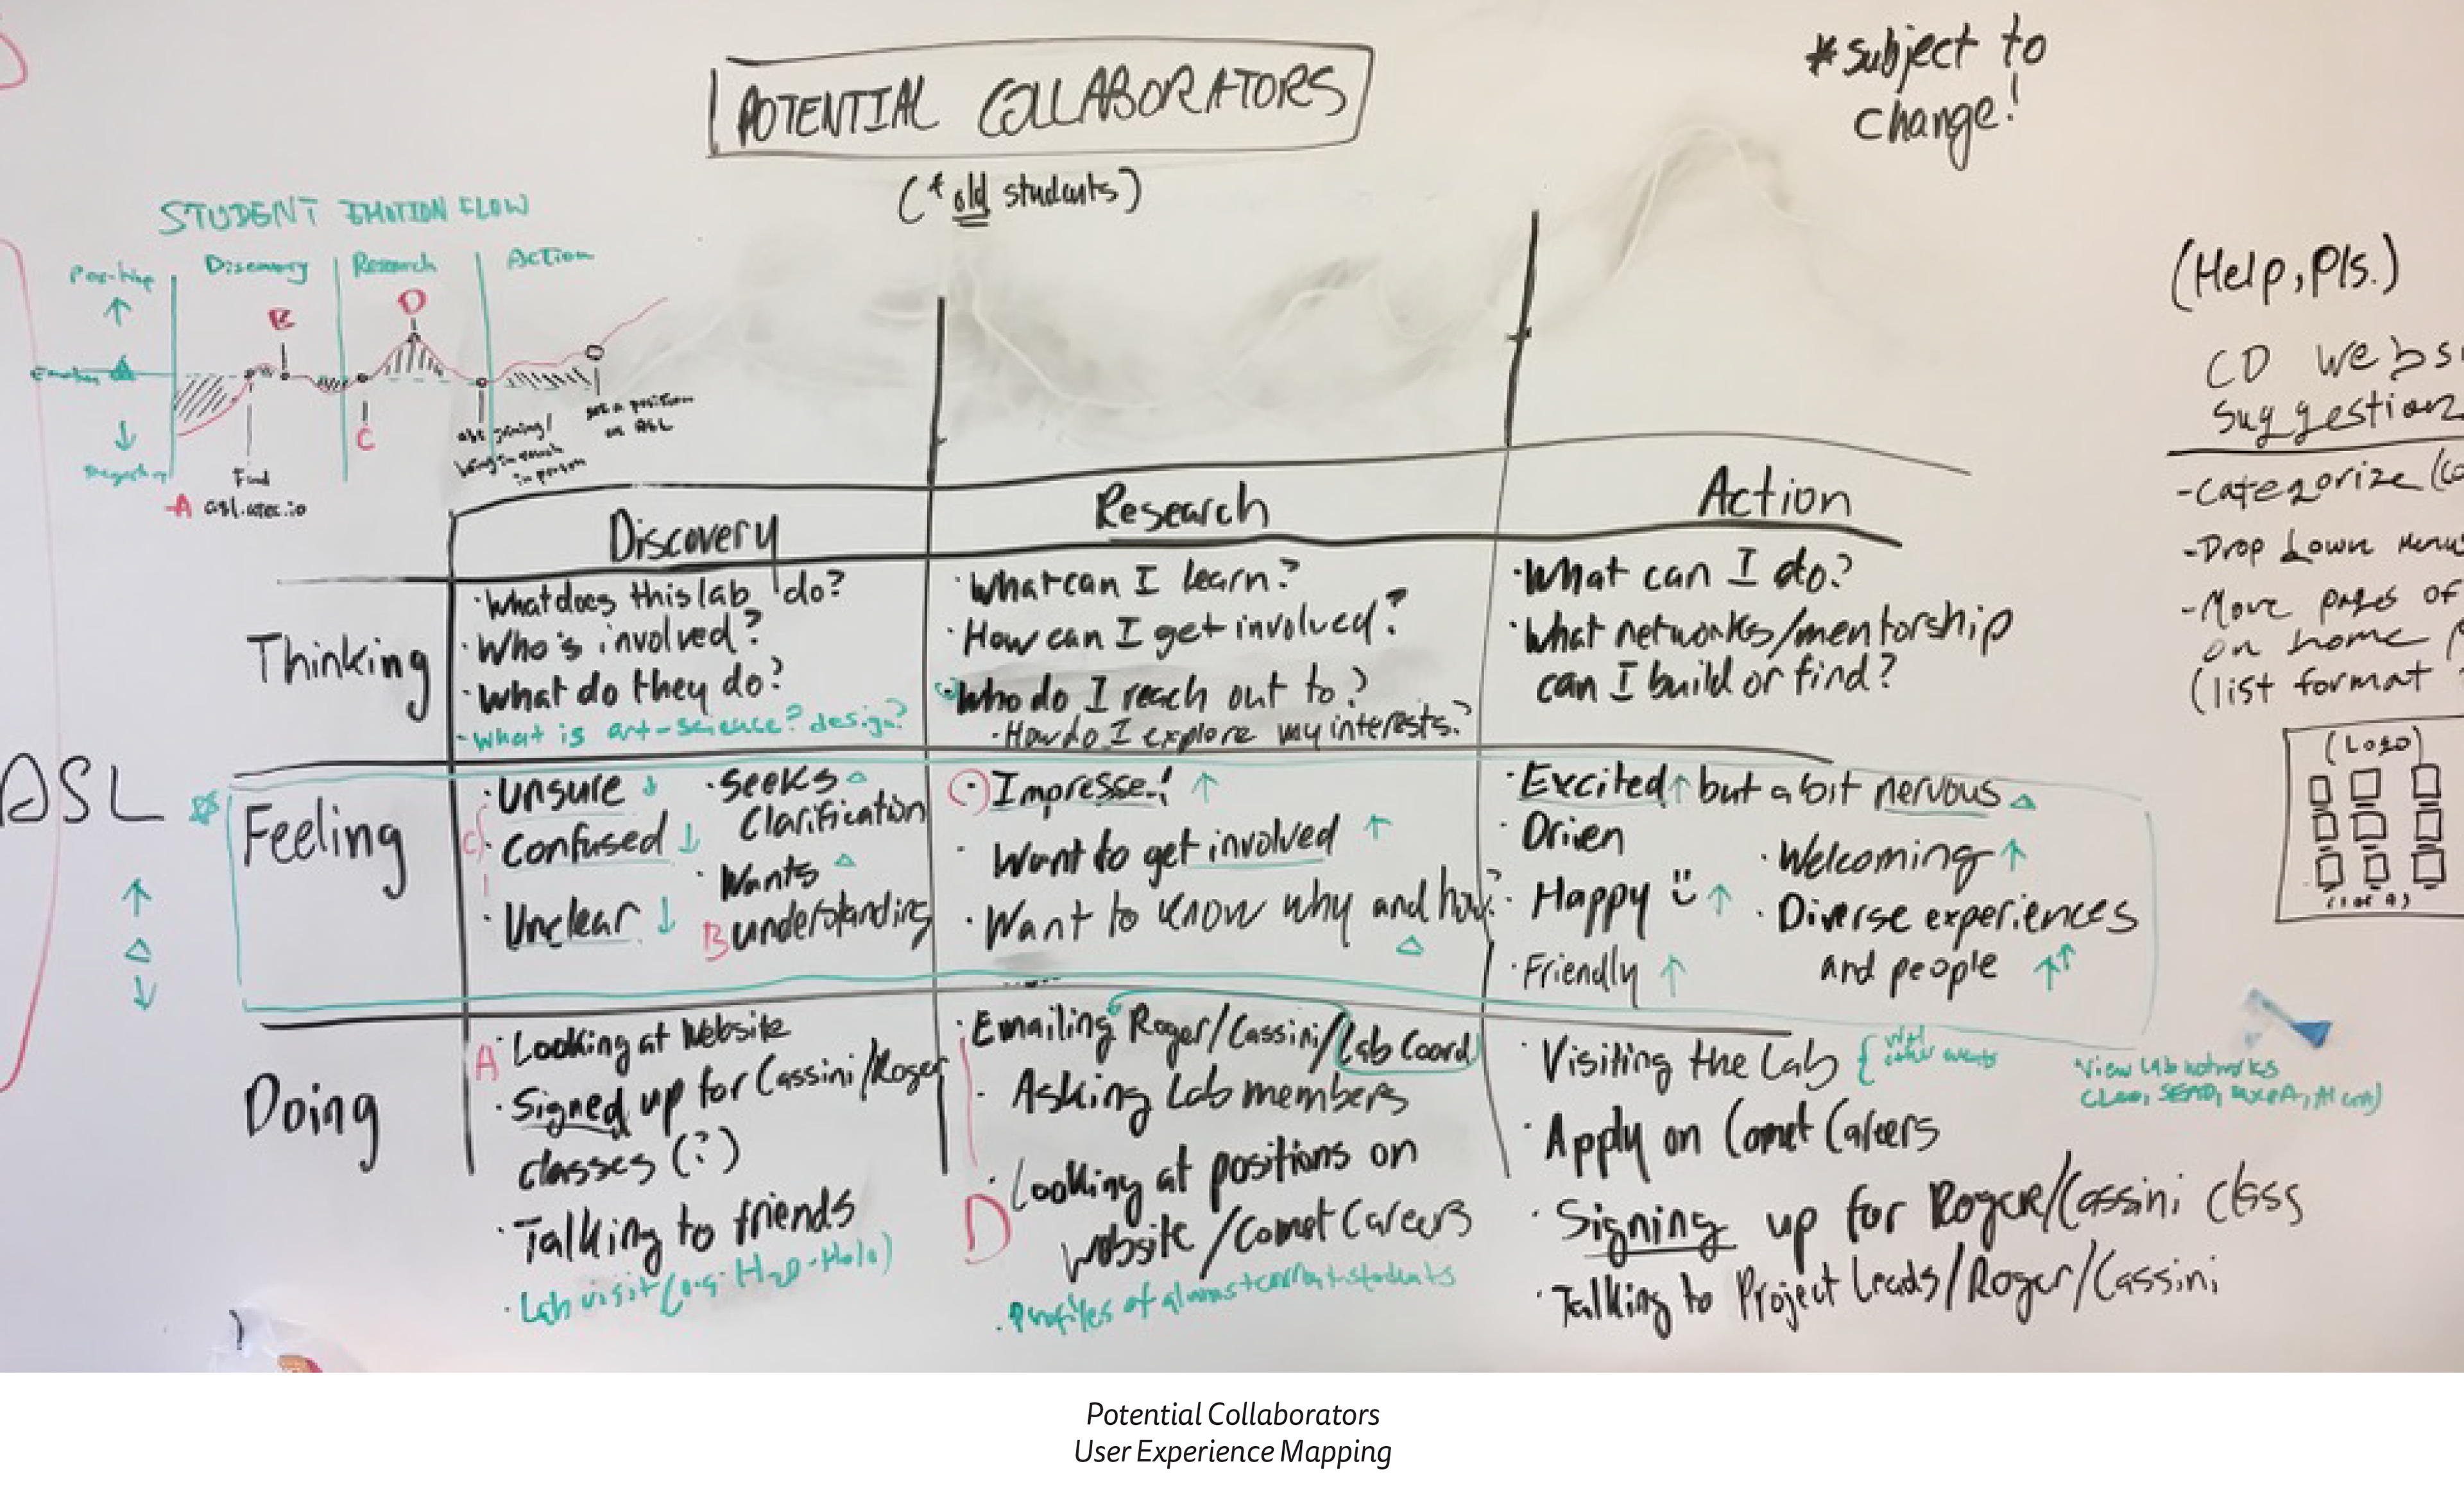 POTENTIAL COLLABORATORS
(+ old students)
*subject to
change!
STUDENT EMOTION FLOW
Positive
Discovery
Research
Action
B
D
C
Find
A asl.atec.io
ask joining/
being in touch
in person
got a position
in ASL
(Help, Pls.)
CD Websi
Suggestion
-Categorize (co
-Drop Down Menu
-Move pages of
on home p
(list format
(Logo)
Discovery
Research
Action
Thinking
·What does this lab do?
·Who's involved?
·What do they do?
-What is art-science? design?
·What can I learn?
·How can I get involved?
·Who do I reach out to?
·How do I explore my interests?
·What can I do?
·What networks/mentorship
can I build or find?
ASL
Feeling
·Unsure ↓
·Confused ↓
·Unclear ↓
·Seeks △
Clarification
·Wants △
B understanding
C
·Impresse! ↑
·Want to get involved ↑
·Want to know why and how? △
·Excited ↑ but a bit nervous △
·Drien
·Happy ↑
·Friendly ↑
·Welcoming ↑
·Diverse experiences
and people ↑↑
↑
△
↓
Doing
A ·Looking at Website
·Signed up for Cassini/Roger
classes (?)
·Talking to friends
·Lab visit (e.g. H2O-Holo)
·Emailing Roger/Cassini/Lab Coord
·Asking Lab members
D ·Looking at positions on
website/Comet Careers
·Profiles of alums + current students
·Visiting the Lab {
other events
·Apply on Comet Careers
·Signing up for Roger/Cassini class
·Talking to Project Leads/Roger/Cassini
*View lab networks
Potential Collaborators
User Experience Mapping